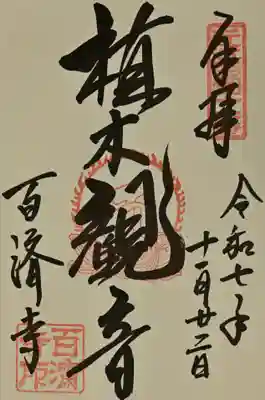 奉拝
令和七年
十一月廿二日
植木觀音
百濟寺
百濟寺印